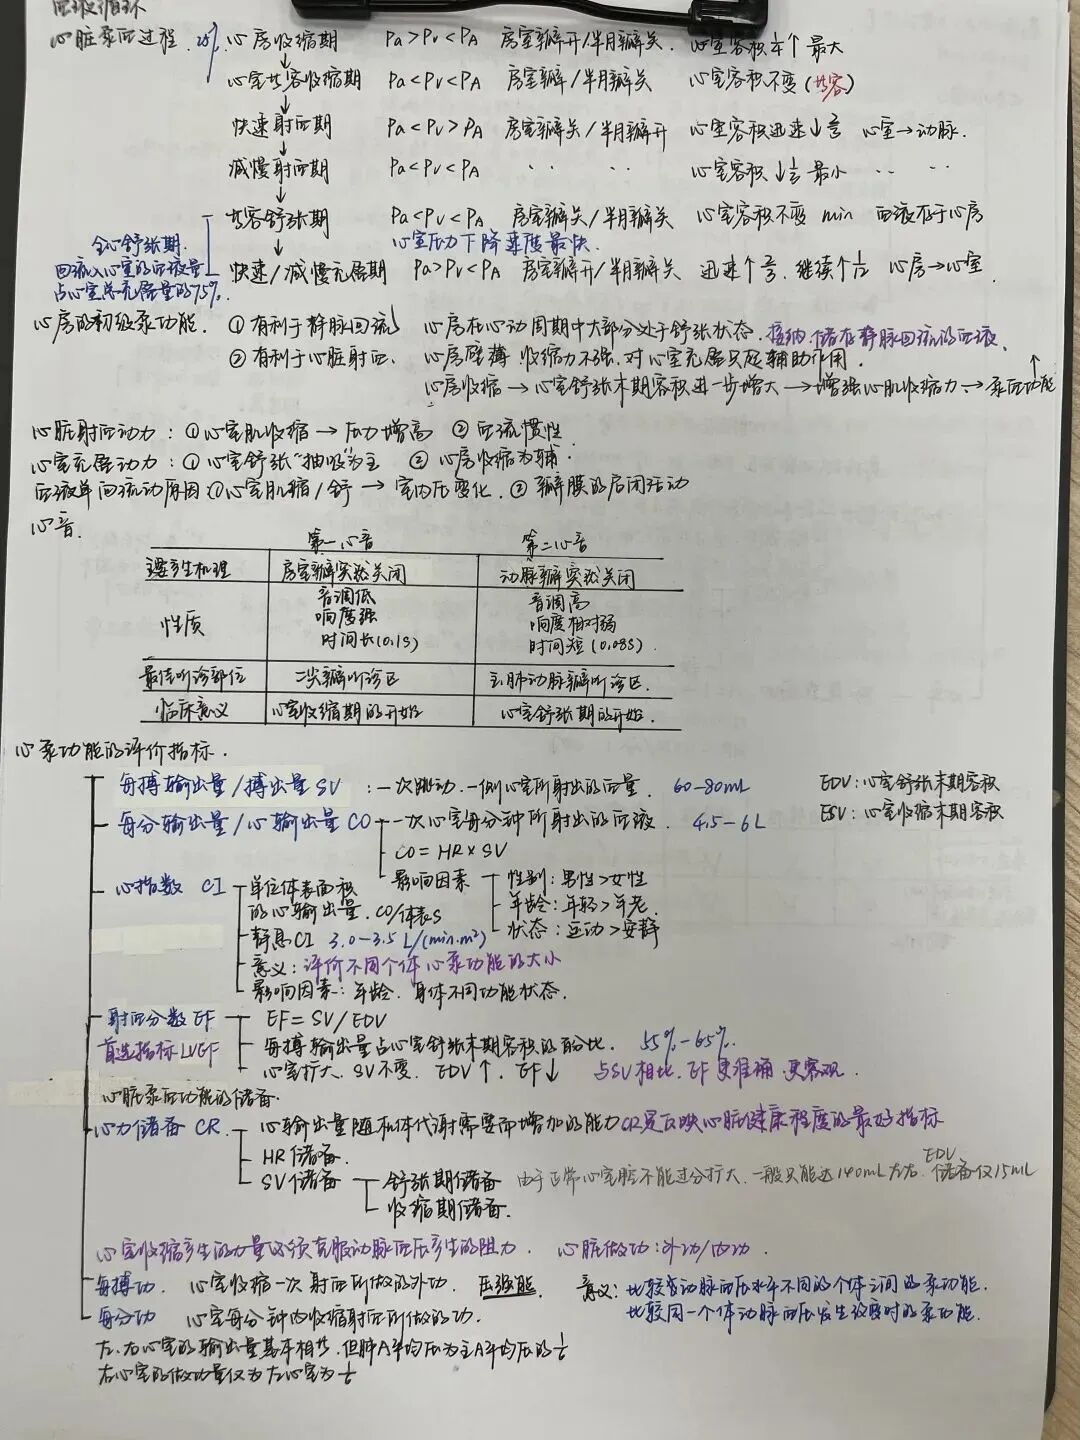 血液循环
心脏泵血过程. 25% 心房收缩期 Pa>Pv<PA 房室瓣开/半月瓣关. 心室容积↑ 最大
心室等容收缩期 Pa<Pv<PA 房室瓣/半月瓣关 心室容积不变(等容)
快速射血期 Pa<Pv>PA 房室瓣关/半月瓣开 心室容积迅速↓⅔ 心室→动脉.
减慢射血期 Pa<Pv<PA ‥ ‥ 心室容积↓⅓ 最小 ‥ ‥
等容舒张期 Pa<Pv<PA 房室瓣关/半月瓣关 心室容积不变 min 血液存于心房
心室压力下降速度最快.
全心舒张期.
回流入心室的血液量
占心室总充盈量的75%.
快速/减慢充盈期 Pa>Pv<PA 房室瓣开/半月瓣关 迅速↑⅔, 继续↑ 心房→心室.
心房的初级泵功能. ①有利于静脉回流 心房在心动周期中大部分处于舒张状态. 接纳.储存静脉回流的血液.
②有利于心脏射血. 心房壁薄 收缩力不强.对心室充盈只起辅助作用.
心房收缩→心室舒张末期容积进一步增大→增强心肌收缩力→泵血功能↑
心脏射血动力：①心室肌收缩→压力增高 ②血流惯性.
心室充盈动力：①心室舒张"抽吸"为主 ②心房收缩为辅.
血液单向流动原因①心室肌缩/舒→室内压变化. ②瓣膜的启闭活动
心音.
第一心音 第二心音
主要产生机理 房室瓣突然关闭 动脉瓣突然关闭
性质 音调低 音调高
响度强 响度相对弱
时间长(0.1s) 时间短(0.08s)
最佳听诊部位 二尖瓣听诊区 主.肺动脉瓣听诊区.
临床意义 心室收缩期的开始 心室舒张期的开始.
心泵功能的评价指标.
每搏输出量/搏出量 SV：一次跳动.一侧心室所射出的血量. 60-80mL EDV：心室舒张末期容积
每分输出量/心输出量 CO 一次心室每分钟所射出的血液. 4.5-6L ESV：心室收缩末期容积
CO=HR×SV
影响因素 性别：男性>女性
年龄：年轻>年老.
状态：运动>安静
心指数 CI 单位体表面积
的心输出量. CO/体表S
静息CI 3.0-3.5 L/(min.m²)
意义：评价不同个体心泵功能的大小
影响因素：年龄.身体不同功能状态.
射血分数 EF EF=SV/EDV
首选指标LVEF 每搏输出量占心室舒张末期容积的百分比. 55%-65%.
心室扩大. SV不变. EDV↑, EF↓ 与SV相比, EF更准确.更客观.
心脏泵血功能的储备.
心力储备 CR. 心输出量随机体代谢需要而增加的能力 CR是反映心脏健康程度的最好指标
HR储备.
SV储备 舒张期储备 由于正常心室腔不能过分扩大. 一般只能达140mL左右. EDV储备仅15mL
收缩期储备.
心室收缩产生的力量必须克服动脉血压产生的阻力. 心脏做功：外功/内功.
每搏功. 心室收缩一次射血所做的外功. 压强能. 意义：比较动脉血压水平不同的个体之间的泵功能.
每分功 心室每分钟内收缩射血所做的功. 比较同一个体动脉血压发生改变时的泵功能.
左.右心室的输出量基本相等.但肺A平均压为主A平均压的⅙
右心室的做功量仅为左心室为⅙